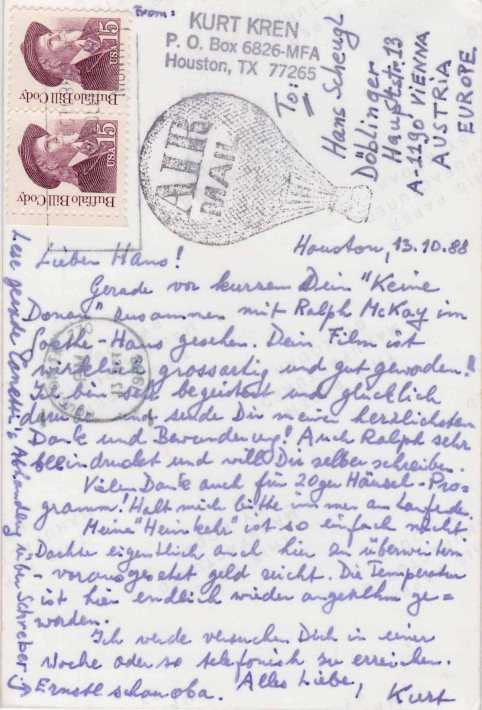 From:
KURT KREN
P. O. Box 6826-MFA
Houston, TX 77265
USA 15
Buffalo Bill Cody
USA 15
Buffalo Bill Cody
AIR
MAIL
To:
Hans Scheugl
Döblinger
Hauptstr. 13
A-1190 VIENNA
AUSTRIA
EUROPE
Houston, 13.10.88
Lieber Hans!
Gerade vor kurzem Dein "Keine
Donau" zusammen mit Ralph McKay im
Goethe-Haus gesehen. Dein Film ist
wirklich grossartig und gut geworden!
Ich bin sehr begeistert und glücklich
und sende Dir meinen herzlichsten
Dank und Bewunderung! Auch Ralph sehr
beeindruckt und will Dir selber schreiben.
Vielen Dank auch für 20ger Häusel-Pro-
gramm! Halt mich bitte immer am Laufenden.
Meine "Heimkehr" ist so einfach nicht
Dachte eigentlich auch hier zu überwintern
- vorausgesetzt geld reicht. Die Temperatur
ist hier endlich wieder angenehm ge-
worden.
Ich werde versuchen Dich in einer
Woche oder so telefonisch zu erreichen.
Alles Liebe,
Kurt
Lese gerade Canetti's Abhandlung über Schreber!
→ Ernstl schau oba.